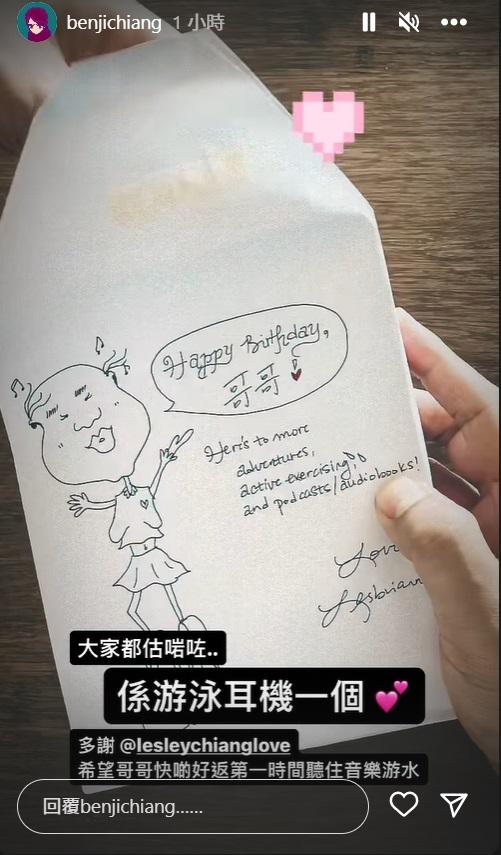 benjichiang 1 小時
Happy Birthday,
哥哥
Here's to more
adventures,
active exercising,
and podcasts/audiobooks!
大家都估啱咗..
係游泳耳機一個 💕
多謝 @lesleychianglove
希望哥哥快啲好返第一時間聽住音樂游水
回覆benjichiang......